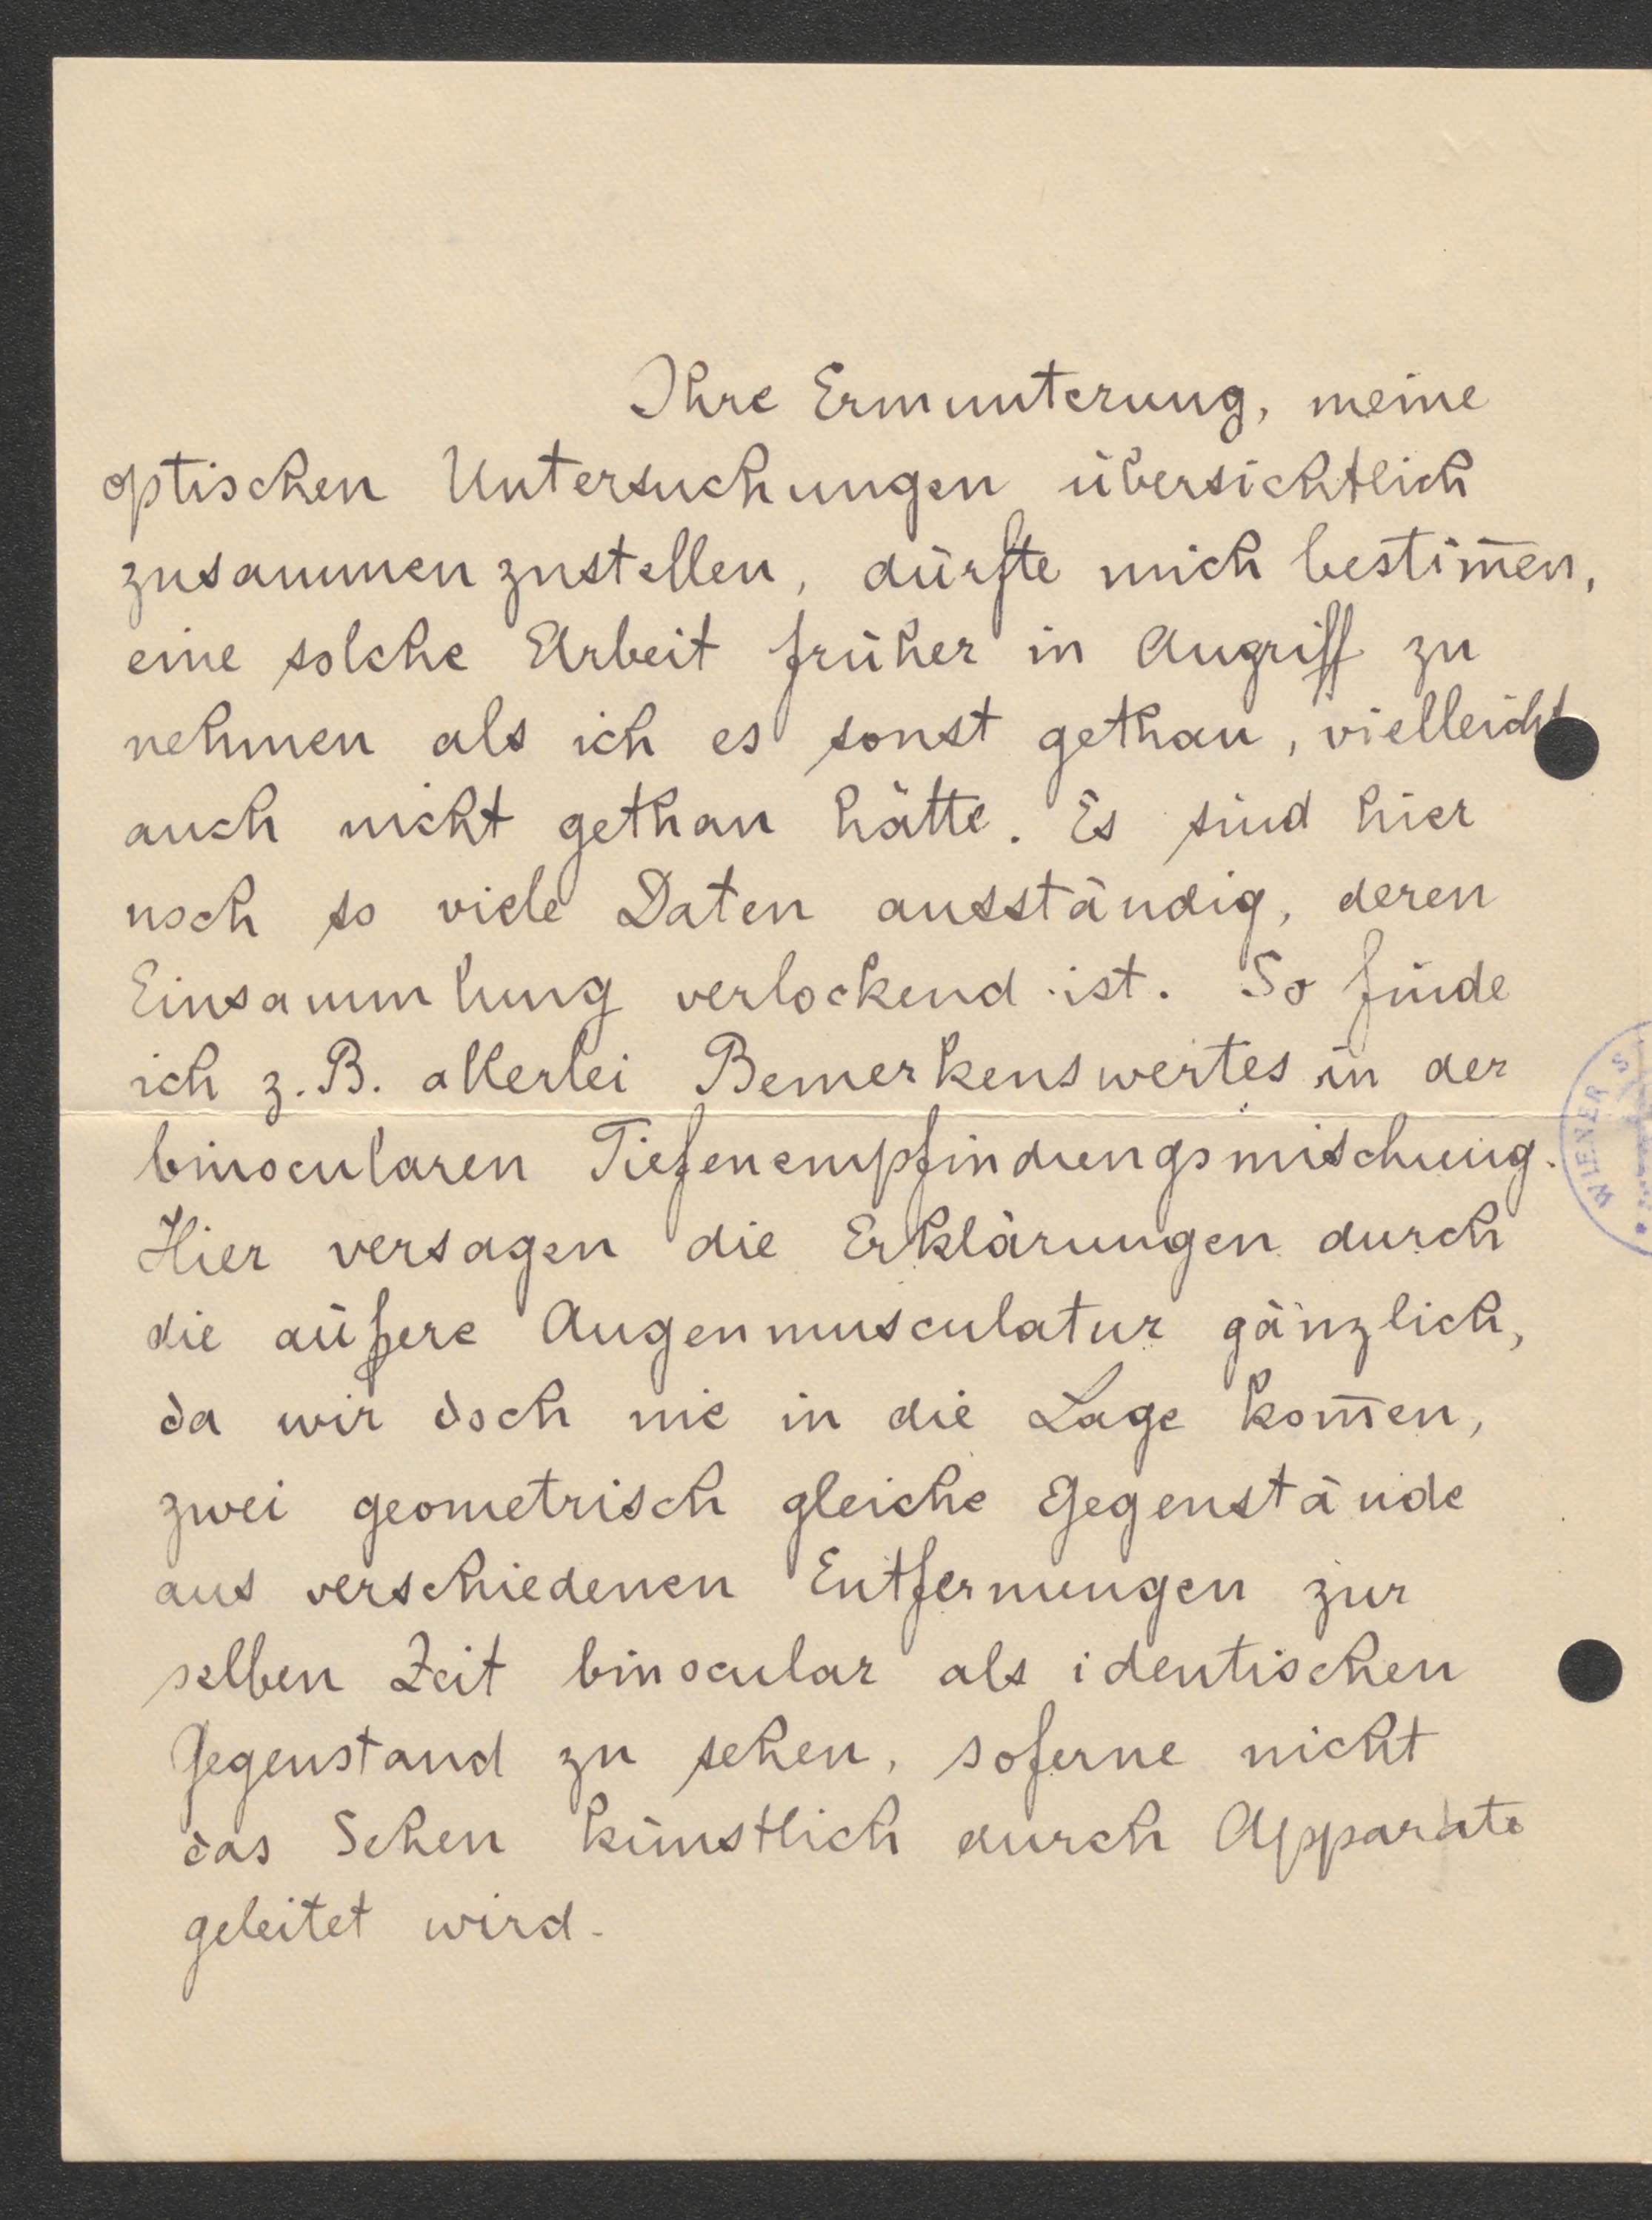 Ihre Ermunterung, meine
optischen Untersuchungen übersichtlich
zusammenzustellen, dürfte mich bestim̅en,
eine solche Arbeit früher in Angriff zu
nehmen als ich es sonst gethan, vielleicht
auch nicht gethan hätte. Es sind hier
noch so viele Daten ausständig, deren
Einsammlung verlockend ist. So finde
ich z. B. allerlei Bemerkenswertes in der
binocularen Tiefenempfindungsmischung.
Hier versagen die Erklärungen durch
die äußere Augenmusculatur gänzlich,
da wir doch nie in die Lage kom̅en,
zwei geometrisch gleiche Gegenstände
aus verschiedenen Entfernungen zur
selben Zeit binocular als identischen
Gegenstand zu sehen, soferne nicht
das Sehen künstlich durch Apparate
geleitet wird.
WIENER S